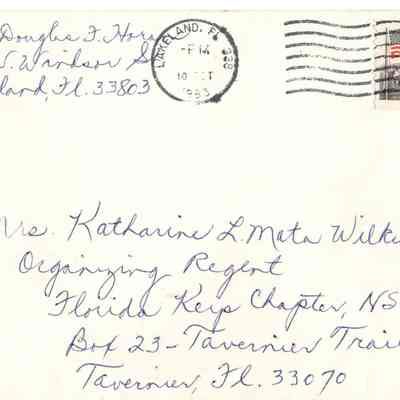 Douglas F. Hora
S. Windsor S
land, Fl. 33803
LAKELAND, FL 338
PM
10 OCT
1983
Mrs. Katharine L. Mata Wilke
Organizing Regent
Florida Keys Chapter, NS
Box 23 - Tavernier Trai
Tavernier, Fl. 33070